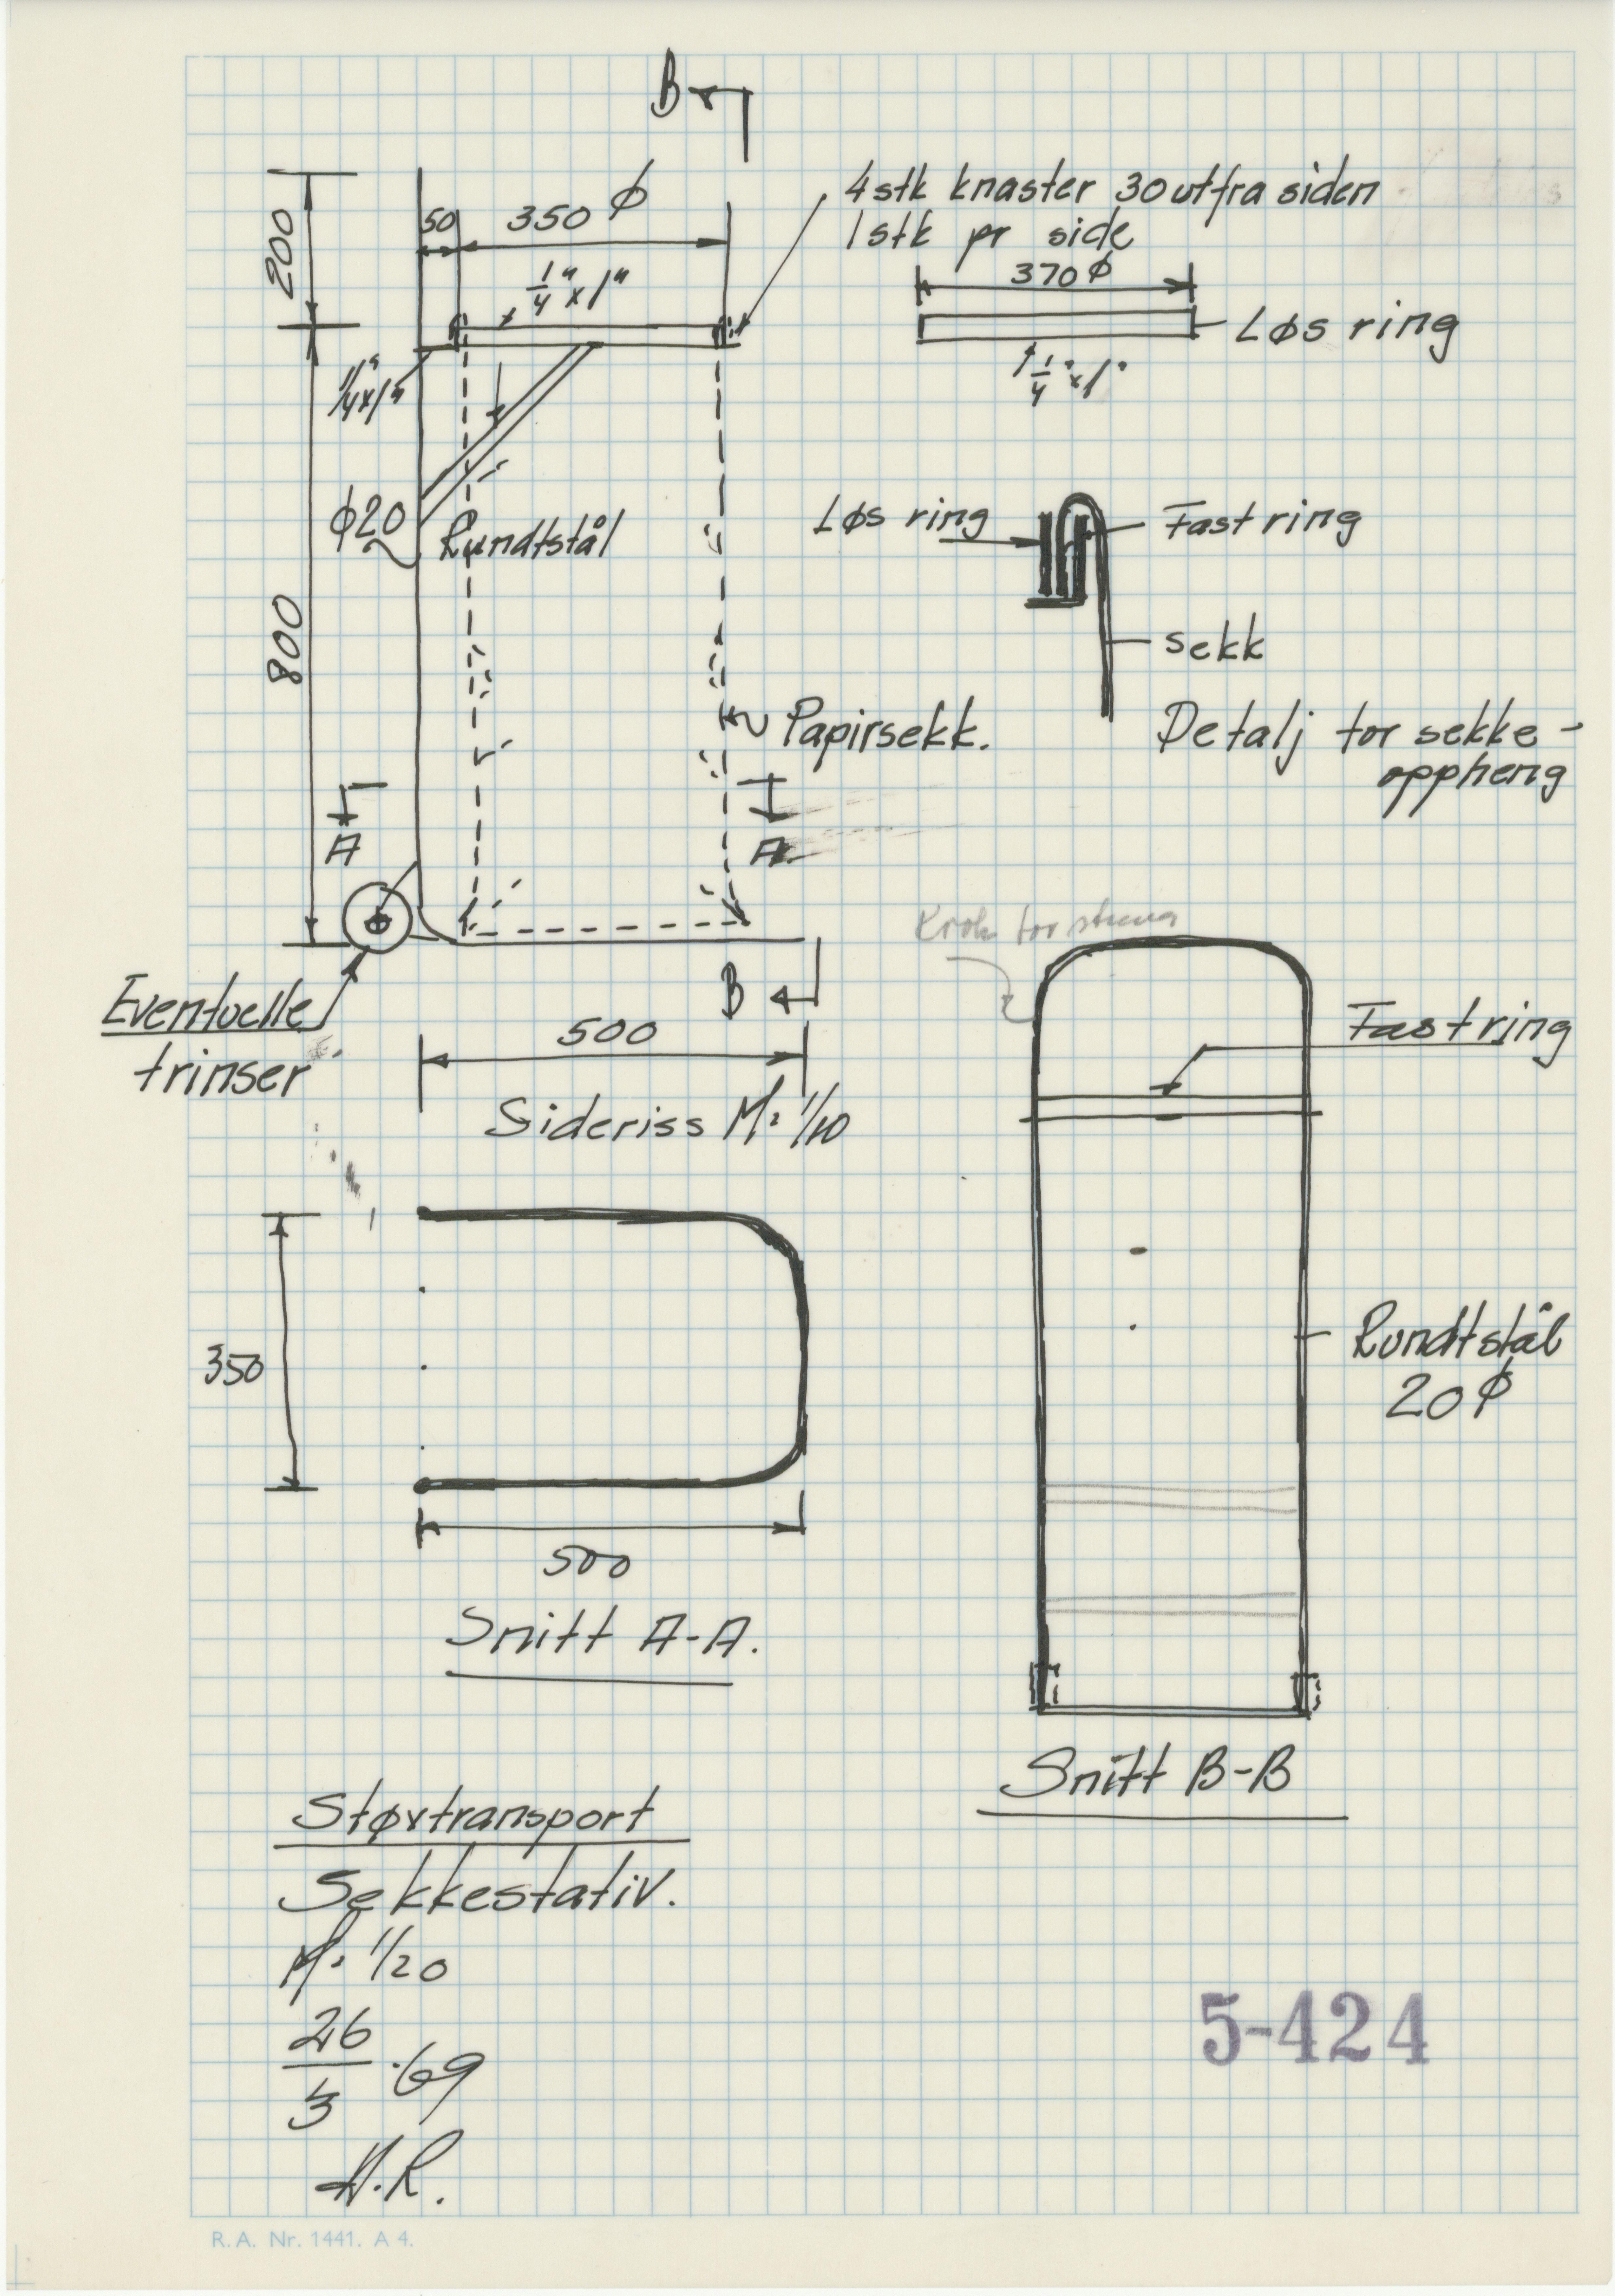 B
4 stk knaster 30 ut fra siden
1 stk pr side
200
50
350 φ
1/4" x 1"
370 φ
Løs ring
1/4" x 1"
1/4" x 1"
φ20
Rundtstål
Løs ring
Fast ring
sekk
800
Papirsekk.
Detalj for sekke-
oppheng
A
A
Krok for
B
Eventuelle
trinser
500
Fast ring
Sideriss M: 1/10
350
Rundtstål
20 φ
500
Snitt A-A.
Snitt B-B
Støvtransport
Sekkestativ.
M: 1/20
26/3 .69
H.R.
5-424
R.A. Nr. 1441. A 4.